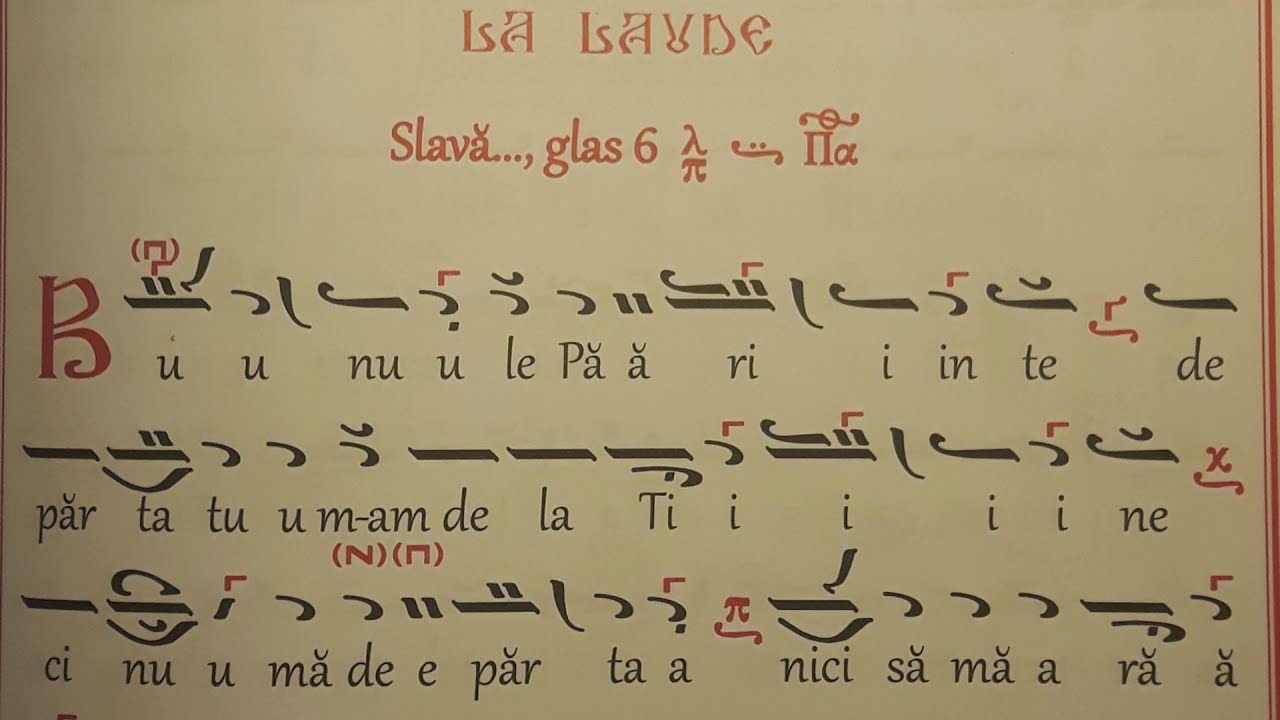 LA LAUDE
Slavă..., glas 6 λ π Πα
(Π)
B u u nu u le Pă ă ri i in te de
păr ta tu u m-am de la Ti i i i i ne
(N) (Π)
ci nu u mă de e păr ta a nici să mă a ră ă